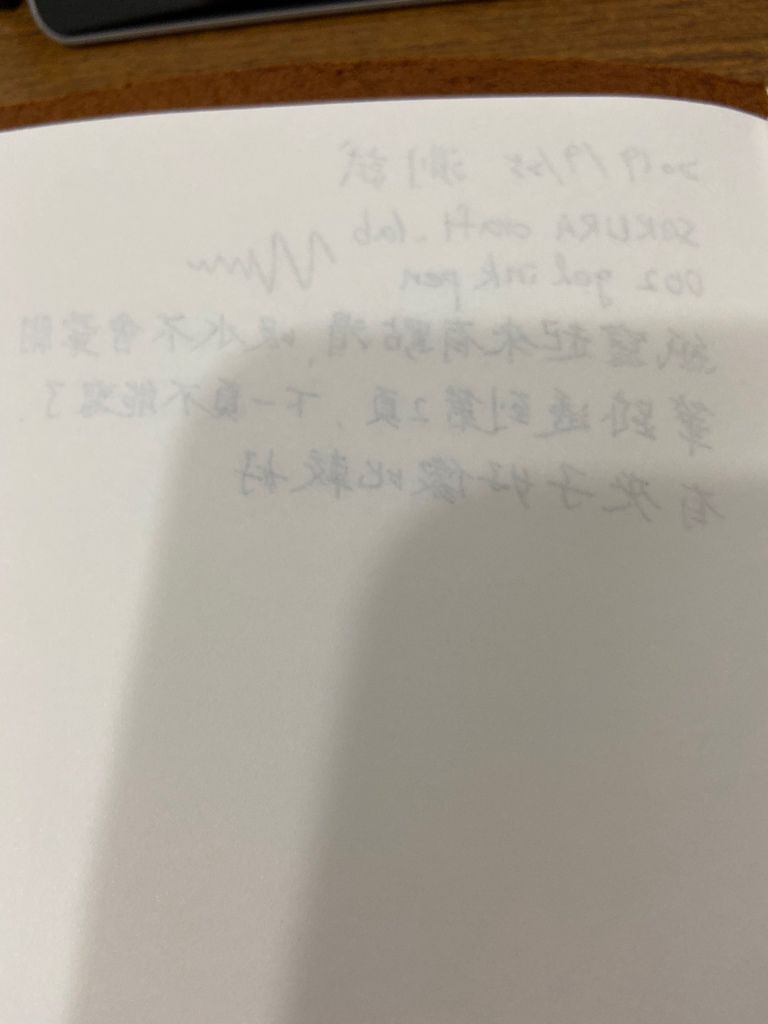 2019/9/25 測試
SAKURA craft_lab
002 gel ink pen
紙寫起來有點滑,吸水不會暈開
筆跡透到第2頁,下一頁不能寫了.
有夾子好像比較好